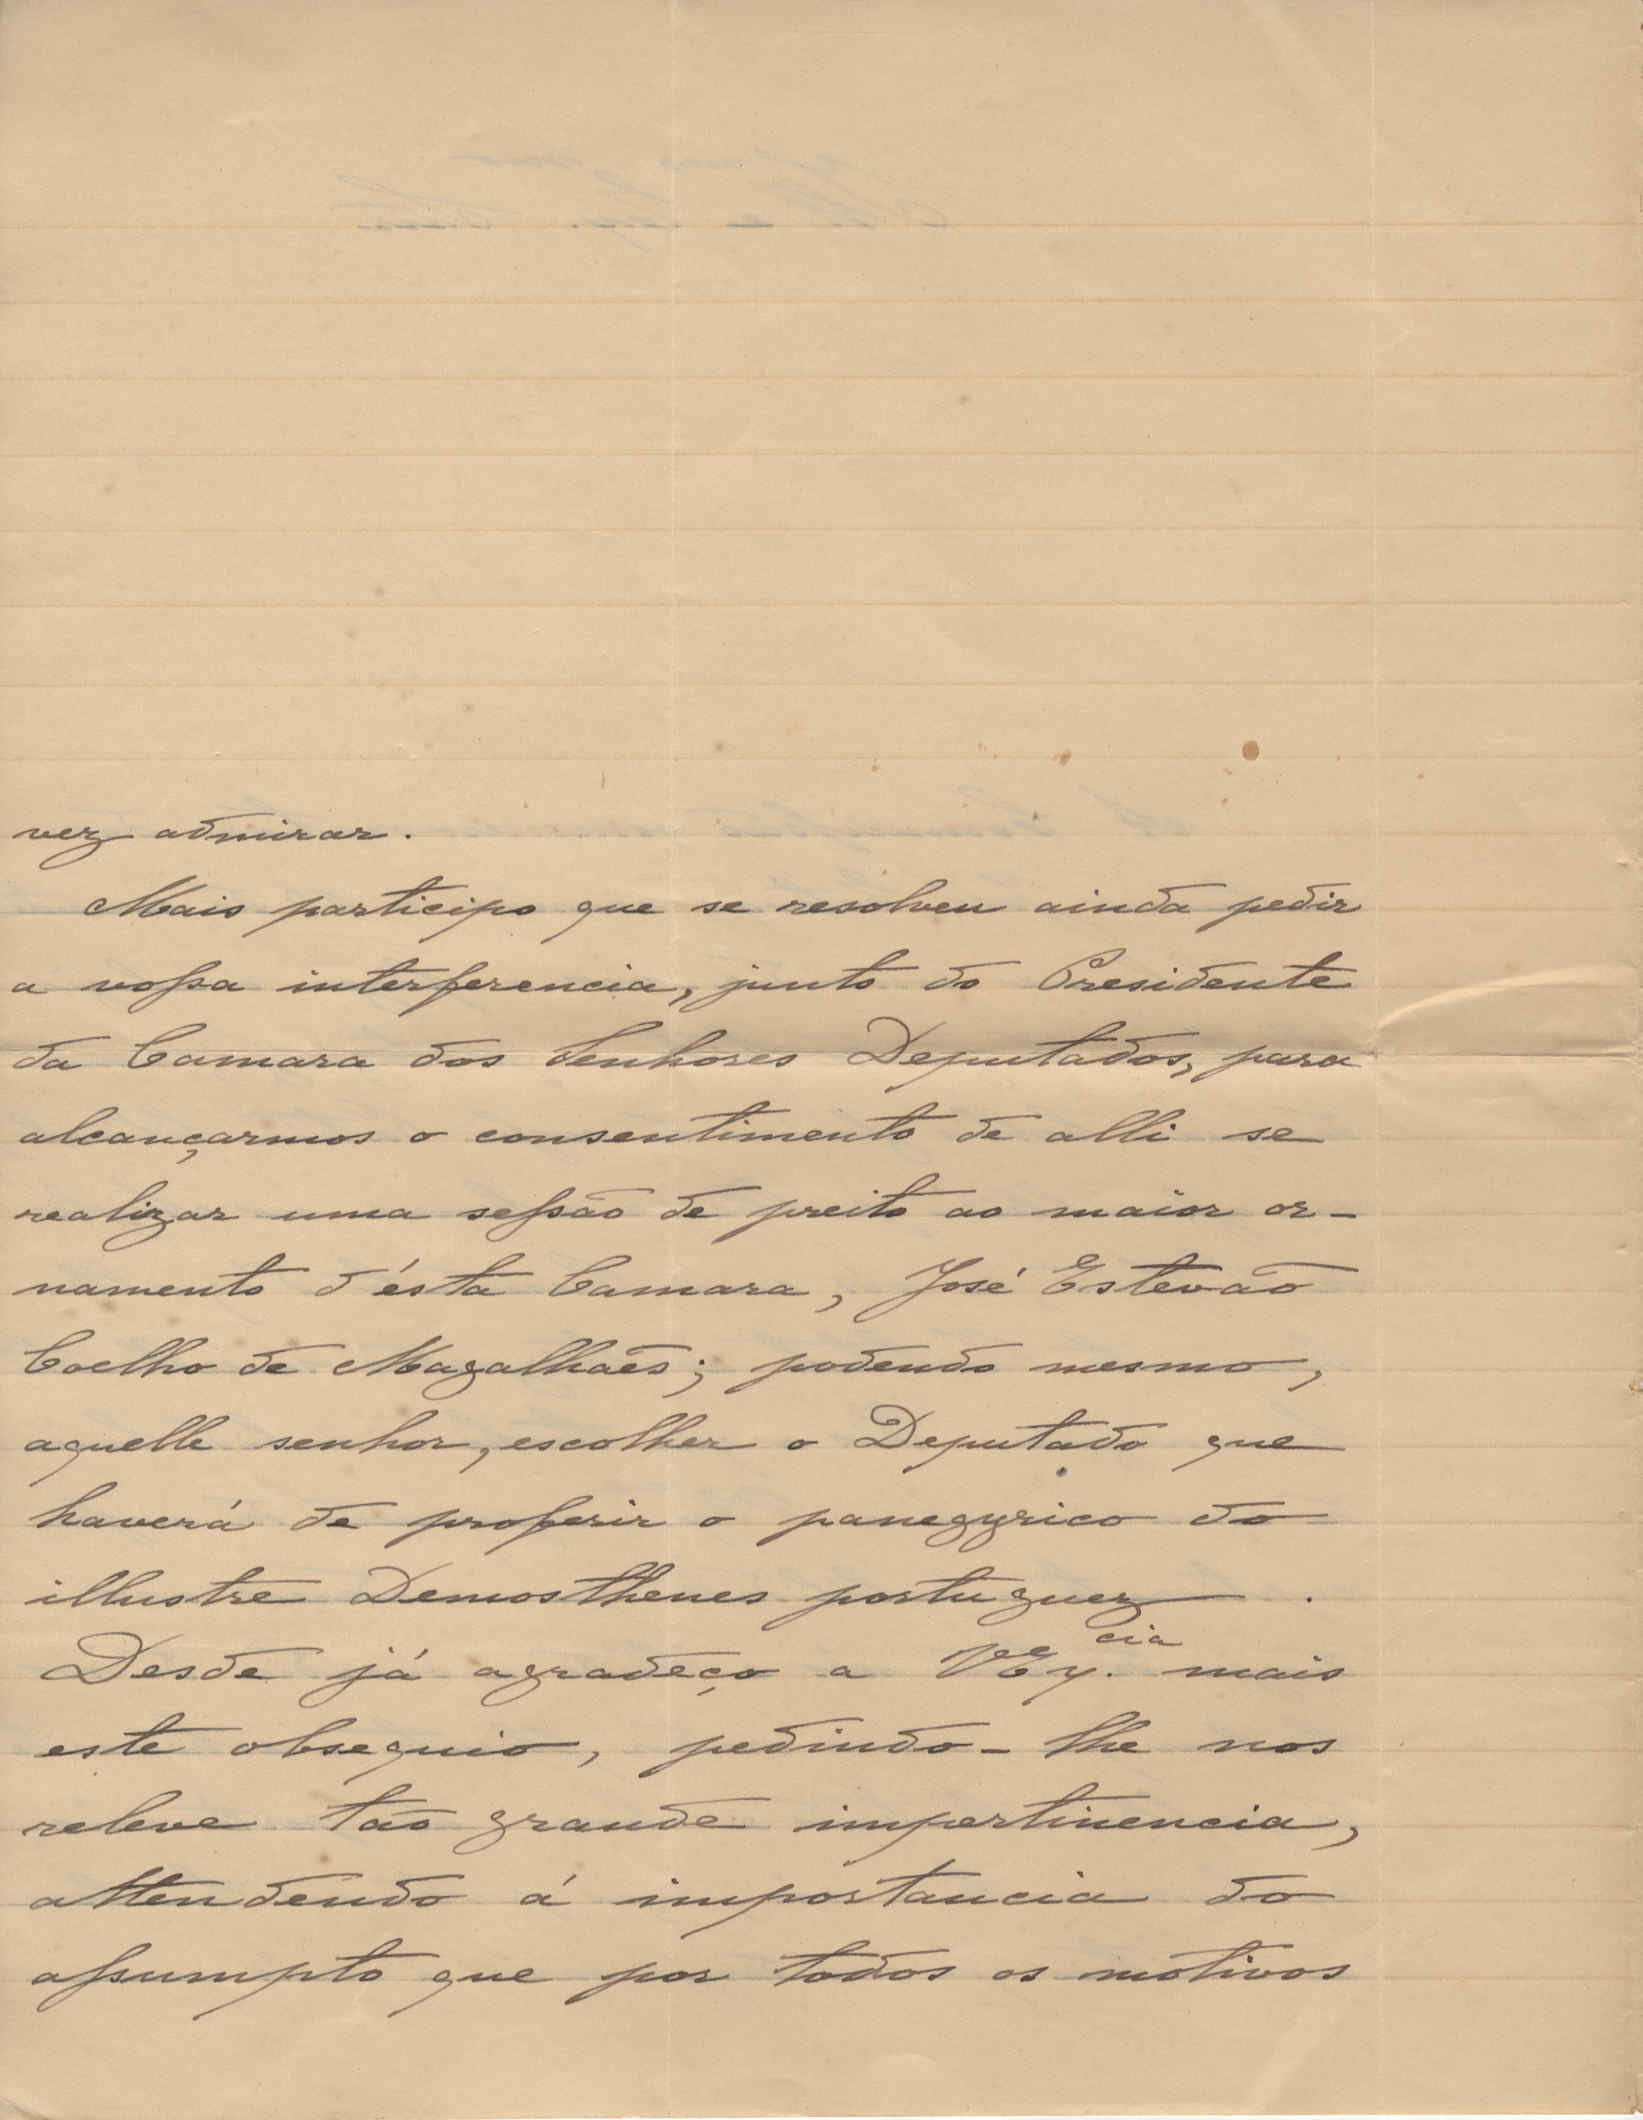 vez admirar.
Mais participo que se resolveu ainda pedir
a vossa interferencia, junto do Presidente
da Camara dos Senhores Deputados, para
alcançarmos o consentimento de alli se
realizar uma sessão de preito ao maior or-
namento d'ésta Camara, José Estevão
Coelho de Magalhães; podendo mesmo,
aquelle senhor, escolher o Deputado que
haverá de proferir o panegyrico do
illustre Demosthenes portuguez.
Desde já agradeço a VEx.cia mais
este obsequio, pedindo-lhe nos
releve tão grande impertinencia,
attendendo á importancia do
assumpto que por todos os motivos